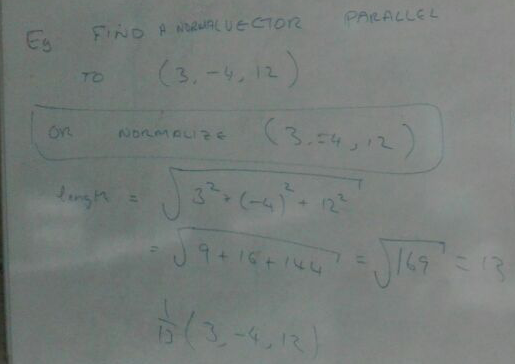 Eg FIND A NORMAL VECTOR PARALLEL
TO (3, -4, 12)
OR NORMALIZE (3, -4, 12)
length = √(3² + (-4)² + 12²)
= √(9 + 16 + 144) = √169 = 13
1/13 (3, -4, 12)